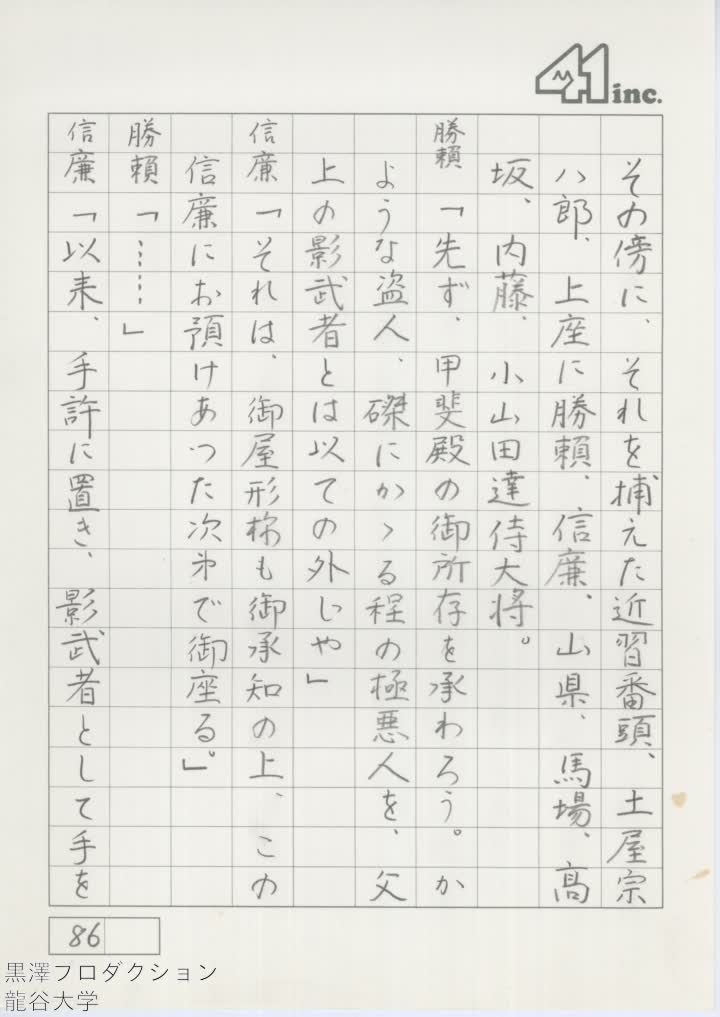 41 inc.
その傍に、それを捕えた近習番頭、土屋宗
八郎、上座に勝頼、信廉、山県、馬場、高
坂、内藤、小山田達侍大将。
勝頼「先ず、甲斐殿の御所存を承わろう。か
ような盗人、磔にかゝる程の極悪人を、父
上の影武者とは以ての外じや」
信廉「それは、御屋形様も御承知の上、この
信廉にお預けあつた次第で御座る。」
勝頼「……」
信廉「以来、手許に置き、影武者として手を
86
黒澤プロダクション
龍谷大学